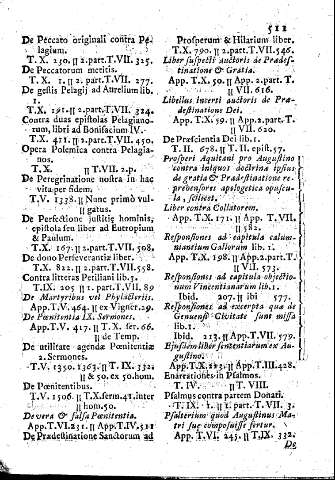 511
De Peccato originali contra Pe-
lagium.
T. X. 230. || 2. part. T. VII. 325.
De Peccatorum meritis.
T. X. 1. || 2. part. T. VII. 277.
De gestis Pelagij ad Aurelium lib.
1.
T. X. 191. || 2. part. T. VII. 324.
Contra duas epistolas Pelagiano-
rum, libri ad Bonifacium IV.
T. X. 411. || 2. part. T. VII. 450.
Opera Polemica contra Pelagia-
nos.
T. X. || T. VII. 2. p.
De Peregrinatione nostra in hac
vita per fidem.
T. V. 1338. || Nunc primò vul-
|| gatus.
De Perfectione justitiæ hominis,
epistola seu liber ad Eutropium
& Paulum.
T. X. 167. || 2. part. T. VII. 508.
De dono Perseverantiæ liber.
T. X. 822. || 2. part. T. VII. 558.
Contra litteras Petiliani lib. 3.
T. IX. 205 || 1. part. T. VII. 89
De Martyribus vel Phylacteriis.
App. T. V. 464. || ex Vigner. 29.
De Pœnitentia IX. Sermones.
App. T. V. 417. || T. X. ser. 66.
|| de Temp.
De utilitate agendæ Pœnitentiæ
2. Sermones.
T. V. 1350. 1363. || T. IX. 332.
|| & 50. ex 50. hom.
De Pœnitentibus.
T. V. 1506. || T. X. serm. 41. inter
|| hom. 50.
De vera & falsa Pœnitentia.
App. T. VI. 231. || App. T. IV. 511
De Prædestinatione Sanctorum ad
Prosperum & Hilarium liber.
T. X. 790. || 2. part. T. VII. 546.
Liber suspecti auctoris de Prædes-
tinatione & Gratia.
App. T. X. 50. || App. 2. part. T.
|| VII. 616.
Libellus incerti auctoris de Præ-
destinatione Dei.
App. T. X. 59. || App. 2. part. T.
|| VII. 620.
De Præscientia Dei lib. 1.
T. II. 678. || T. II. epist. 57.
Prosperi Aquitani pro Augustino
contra iniquos doctrinæ ipsius
de gratia & Prædestinatione re-
prehensores apologetica opuscu-
la, scilicet.
Liber contra Collatorem.
App. T. X. 171. || App. T. VII.
|| 582.
Responsiones ad capitula calum-
niantium Gallorum lib. 1.
App. T. X. 198. || App. 2. part. T.
|| VII. 573.
Responsiones ad capitula objectio-
num Vincentianarum lib. 1.
Ibid. 207. || ibi 577.
Responsiones ad excerpta quæ de
Genuensi Civitate sunt missa
lib. 1.
Ibid. 213. || App. T. VII. 579.
Ejusdem liber sententiarum ex Au-
gustino.
App. T. X. 223. || App. T. III. 428.
Enarrationes in Psalmos.
T. IV. || T. VIII.
Psalmus contra partem Donati.
T. IX. 1. || 1. part. T. VII. 3.
Psalterium quod Augustinus Ma-
tri suæ composuisse fertur.
App. T. VI. 245. || T. IX. 332.
De